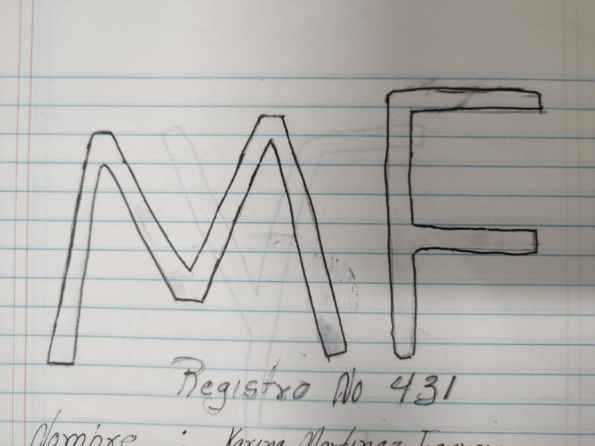 MF
Registro No 431
Nombre : Karina Martinez